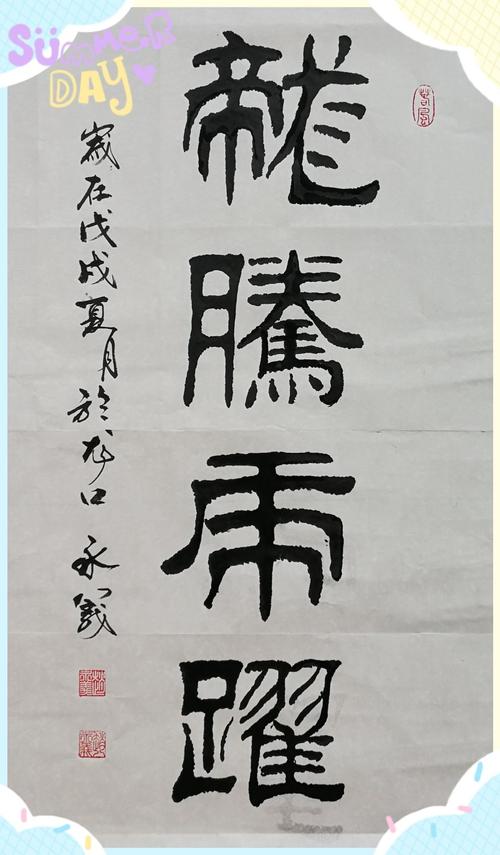 Summer
DAY
龍騰虎躍
歲在戊戌夏月於龙口 永義